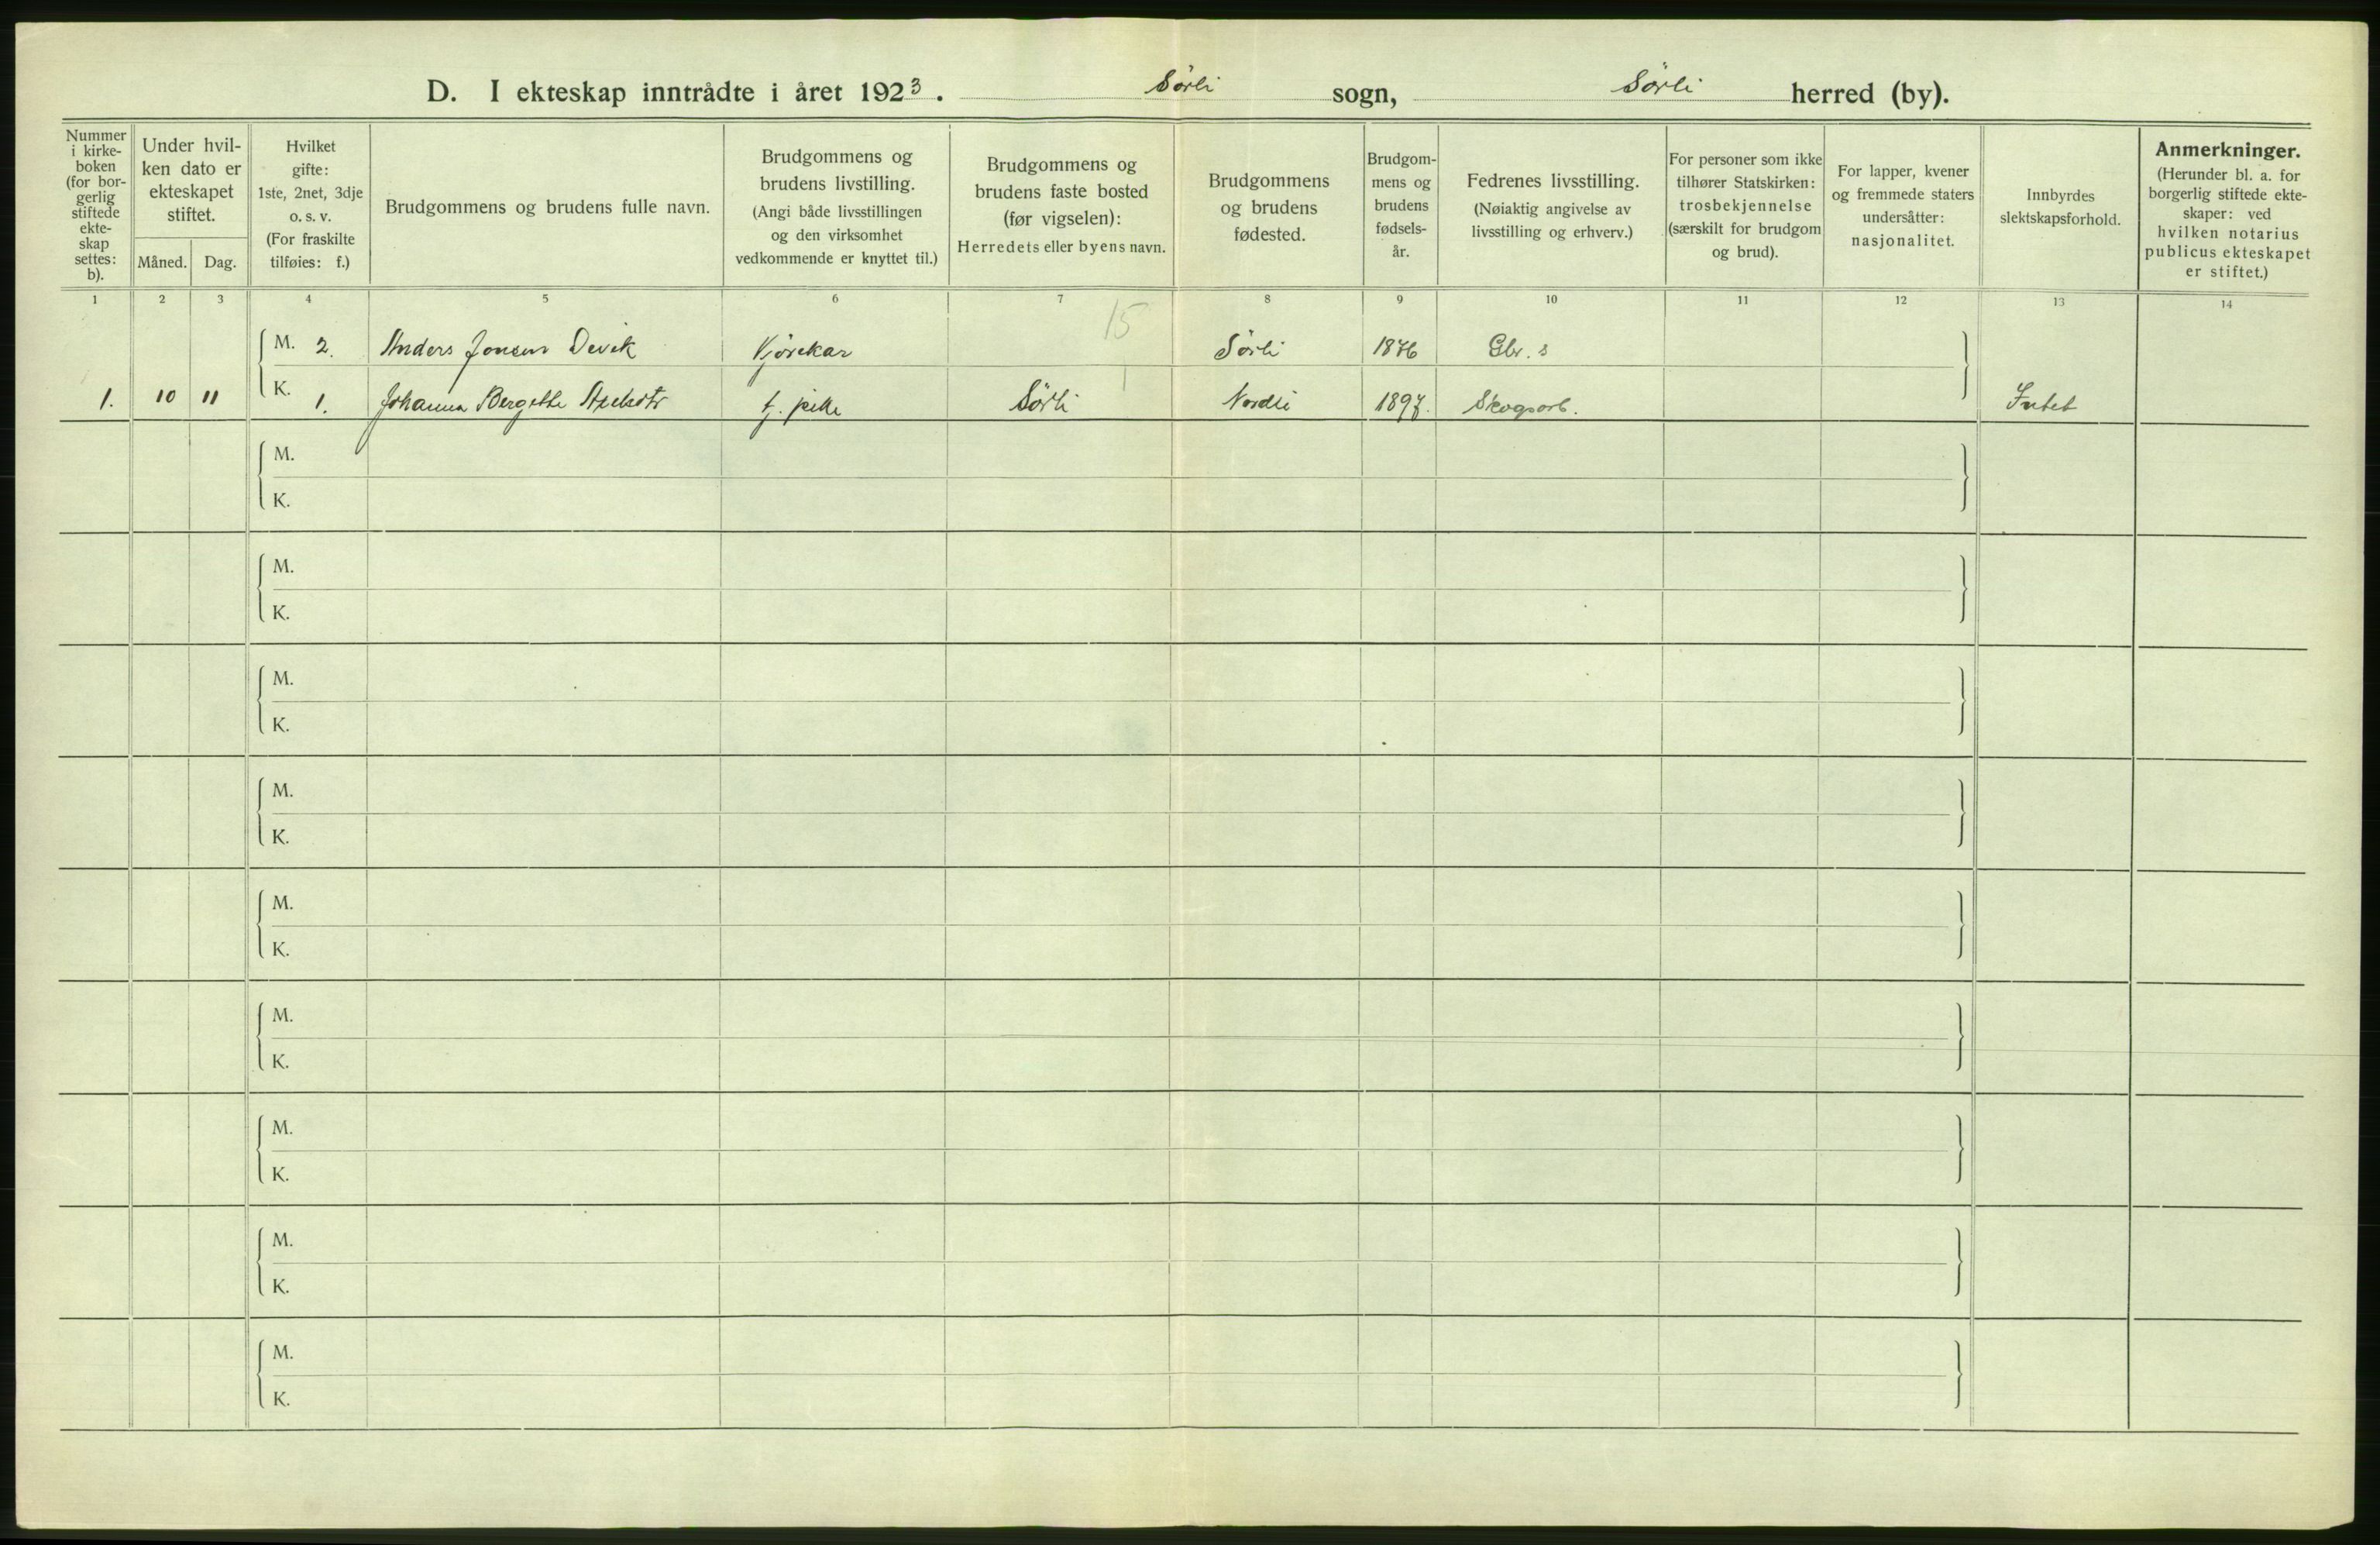 D. I ekteskap inntrådte i året 1923. Sörli sogn, Sörli herred (by).
Nummer i kirke-boken (for bor-gerlig stiftede ekte-skap settes: b).
Under hvil-ken dato er ekteskapet stiftet.
Måned. Dag.
Hvilket gifte: 1ste, 2net, 3dje o. s. v. (For fraskilte tilføies: f.)
Brudgommens og brudens fulle navn.
Brudgommens og brudens livstilling. (Angi både livsstillingen og den virksomhet vedkommende er knyttet til.)
Brudgommens og brudens faste bosted (før vigselen): Herredets eller byens navn.
Brudgommens og brudens fødested.
Brudgom-mens og brudens fødsels-år.
Fedrenes livsstilling. (Nøiaktig angivelse av livsstilling og erhverv.)
For personer som ikke tilhører Statskirken: trosbekjennelse (særskilt for brudgom og brud).
For lapper, kvener og fremmede staters undersåtter: nasjonalitet.
Innbyrdes slektskapsforhold.
Anmerkninger. (Herunder bl. a. for borgerlig stiftede ekte-skaper: ved hvilken notarius publicus ekteskapet er stiftet.)
1 2 3 4 5 6 7 8 9 10 11 12 13 14
15
M. 2. Anders Jonsen Devik Kjörekar Sörli 1876 Gbr. s
1. 10 11 K. 1. Johanna Bergitte t. pike Sörli Nordli 1897. Skogsarb. Intet
M.
K.
M.
K.
M.
K.
M.
K.
M.
K.
M.
K.
M.
K.
M.
K.
M.
K.